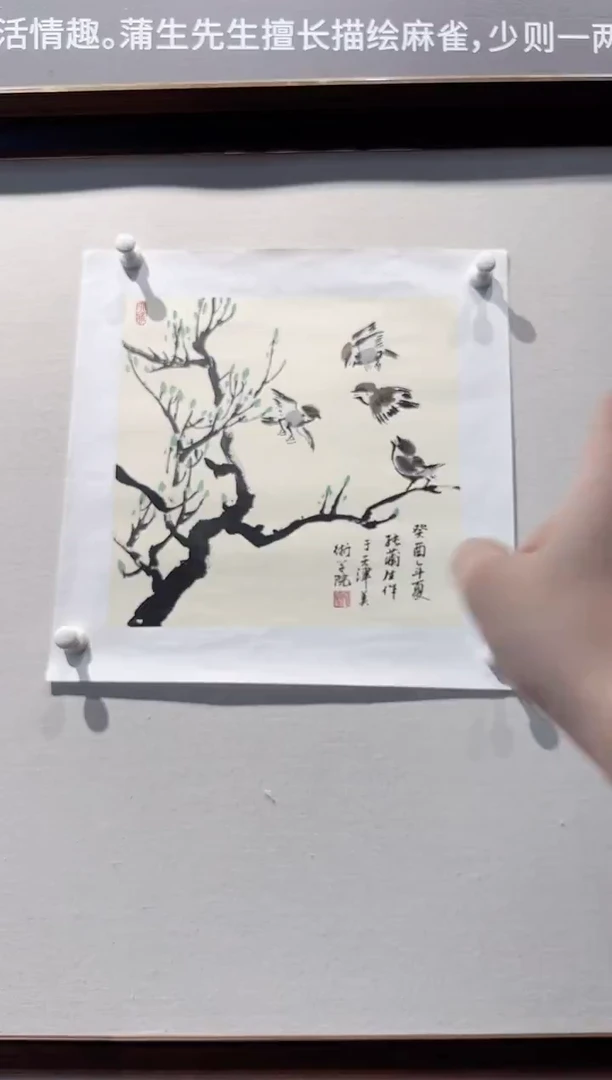 活情趣。蒲生先生擅长描绘麻雀，少则一两
癸酉年夏
张蒲生作
于天津美
术学院